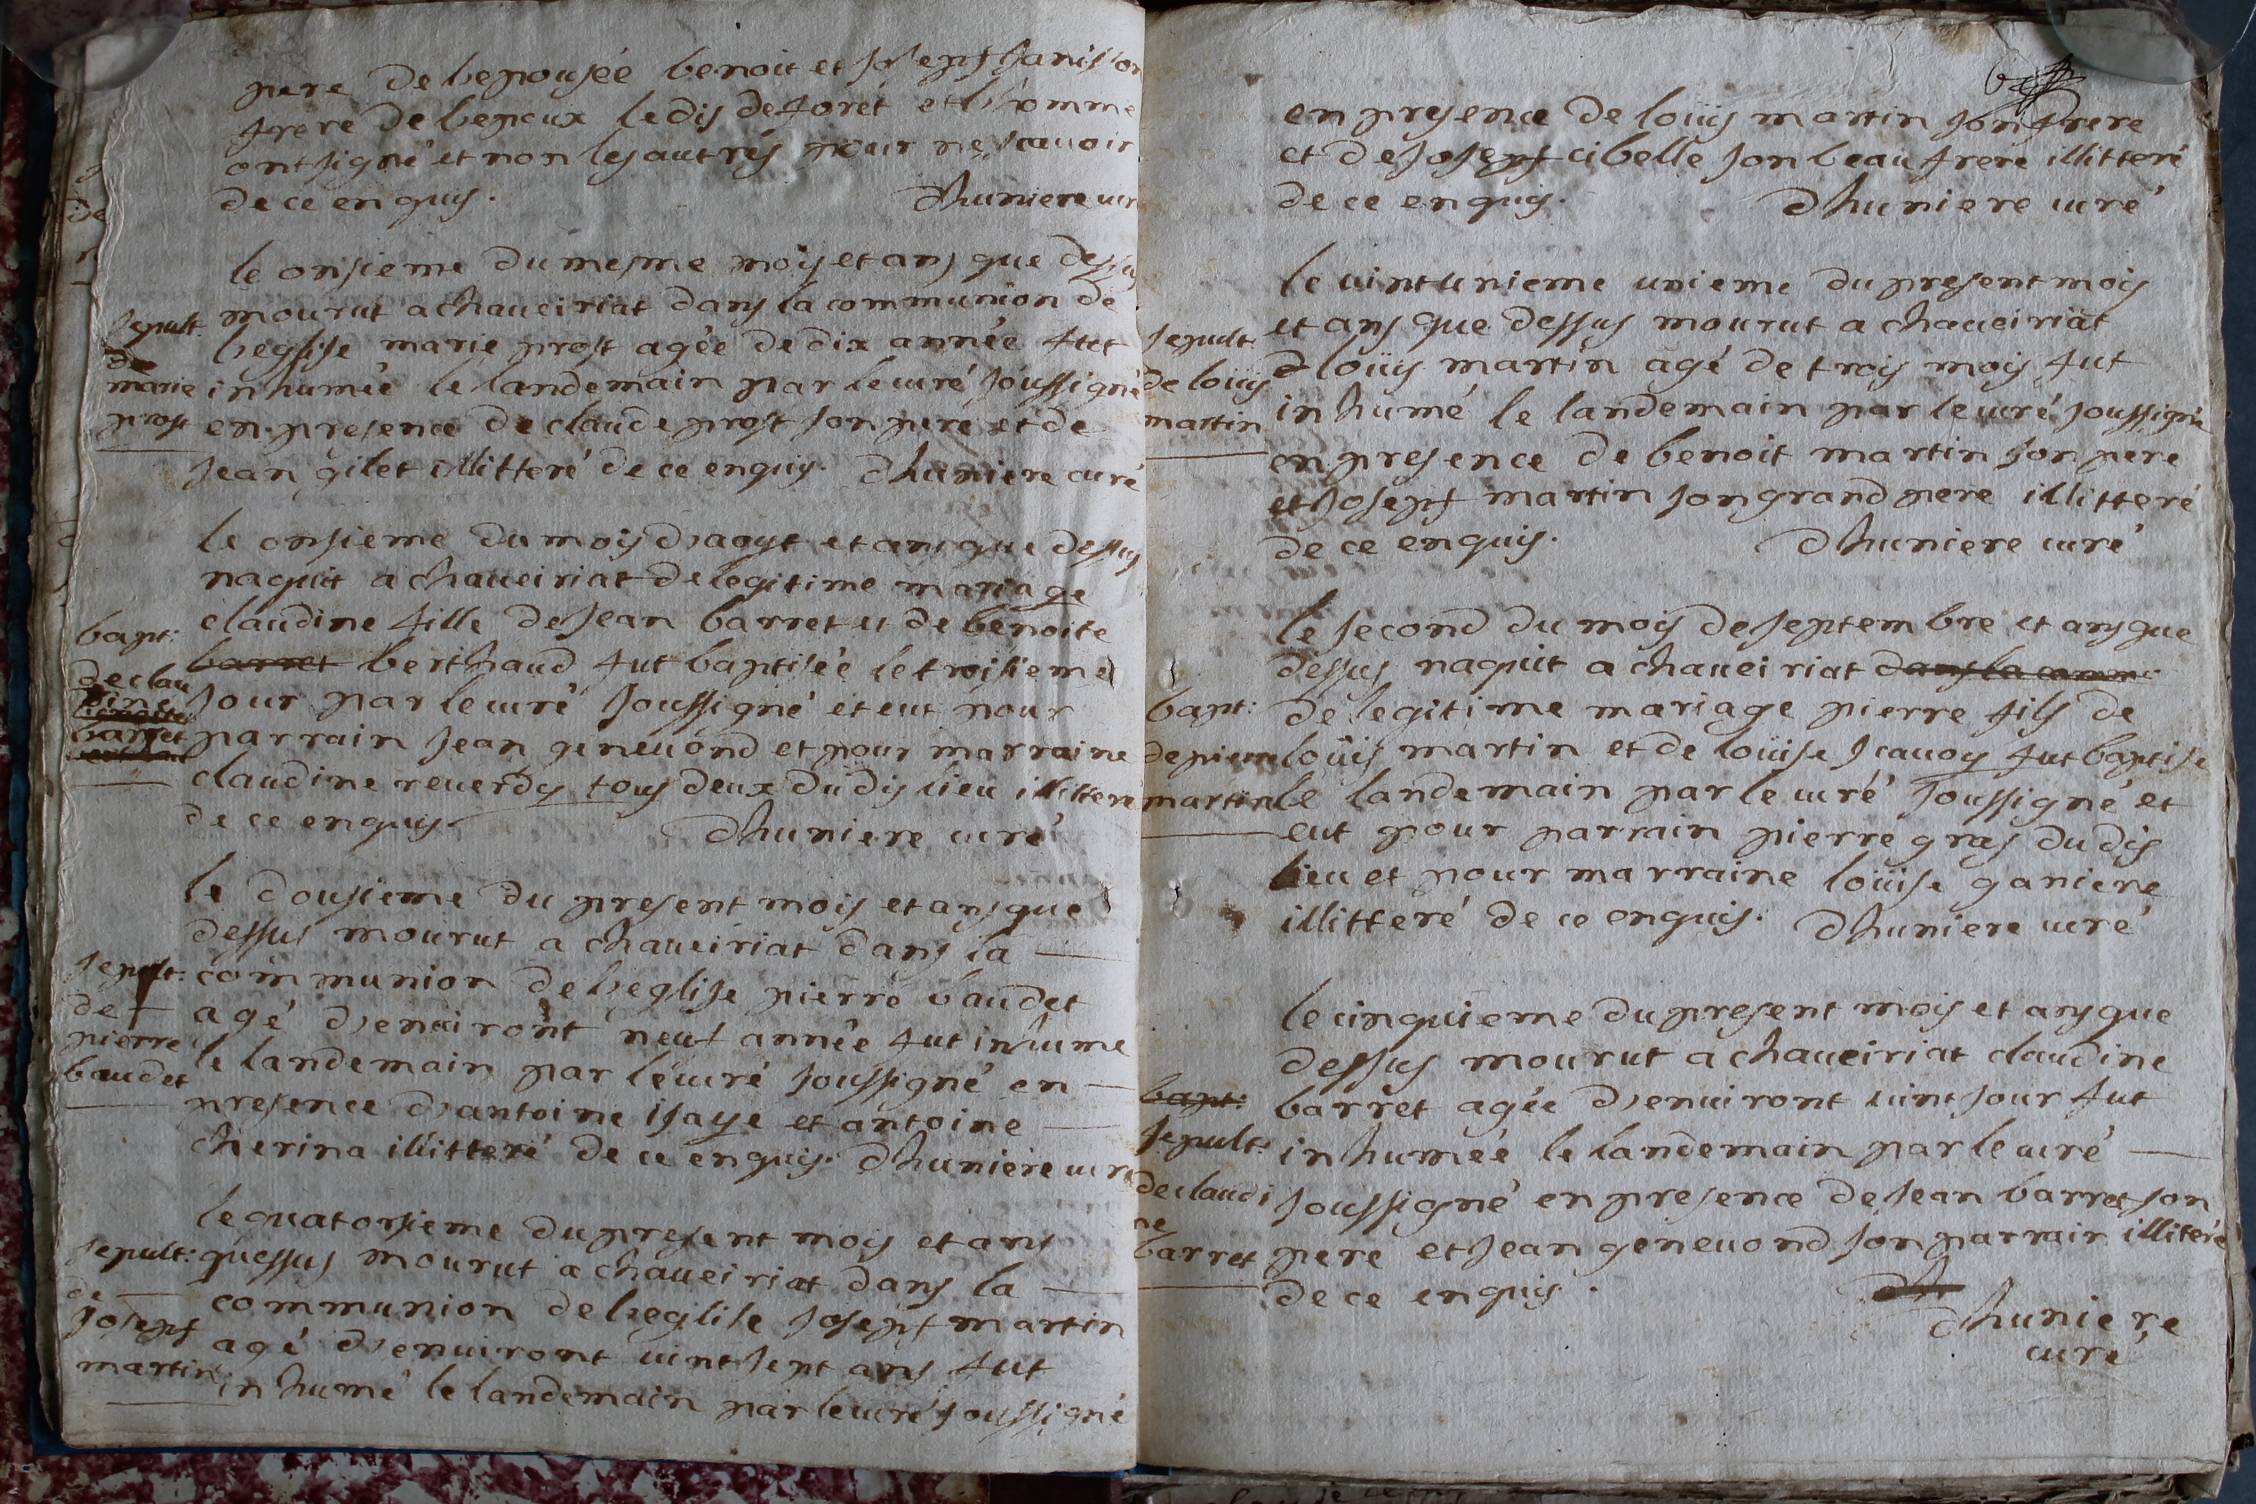 pere de lepousée benoit et josepf janisson
frere de lepoux ledis deforét et l'homme
ont signé et non les autrés pour ne scauoir
de ce enquis. Dhuniere cur
le onsieme du mesme mois et ans que dessus
mourut a chaueiriat dans la communion de
sepult: de marie prost
leglise marie prost agée de dix année fut
inhumée le landemain par le curé soussigné
en presence de claude prost son pere et de
jean gilet illitteré de ce enquis. Dhuniere curé
le onsieme du mois d'aoust et ans que dessus
naquit a chaueiriat de legitime mariage
bapt: de clau dine barret
claudine fille de jean barret et de benoite
barret berthaud fut baptisée le troisieme
jour par le curé soussigné et eut pour
parrain jean geneuond et pour marraine
claudine reuerdy tous deux dudis lieu illitteré
de ce enquis. Dhuniere curé
le dousieme du present mois et ans que
dessus mourut a chaueiriat dans la
sepult: de pierre baudet
communion de leglise pierre baudet
agé d'enuiront neuf année fut inhume
le landemain par le curé soussigné en
presence d'antoine isaye et antoine
cherina illitteré de ce enquis. Dhuniere curé
le quatorsieme du present mois et ans
sepult: de josepf martin
quessus mourut a chaueiriat dans la
communion de leglise josepf martin
agé d'enuiront uint sept ans fut
inhumé le landemain par le curé soussigné
en presence de loüis martin son frere
et de josepf cibelle son beau frere illitteré
de ce enquis. Dhuniere curé
le uintunieme unieme du present mois
et ans que dessus mourut a chaueiriat
sepult: de loüis martin
loüis martin agé de trois mois fut
inhumé le landemain par le curé soussigné
en presence de benoit martin son pere
et josepf martin son grand pere illitteré
de ce enquis. Dhuniere curé
le second du mois de septembre et ans que
dessus naquit a chaueiriat dans la comm
bapt: de pierre martin
de legitime mariage pierre fils de
loüis martin et de loüise scauoy fut baptise
le landemain par le curé soussigné et
eut pour parrain pierre gras dudis
lieu et pour marraine loüise ganiere
illitteré de ce enquis. Dhuniere curé
le cinquieme du present mois et ans que
dessus mourut a chaueiriat claudine
bapt: sepult: de claudi ne barret
barret agée d'enuiront uint jour fut
inhumée le landemain par le curé
soussigné en presence de jean barret son
pere et jean geneuond son parrain illiteré
de ce enquis. dh
Dhuniere
curé